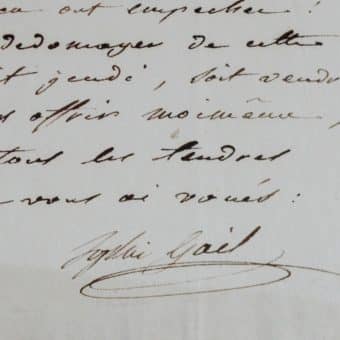 ont empecher !
dedomager de cette
jeudi, soit vendr
offrir moimême,
tous les tendres
vous ai voués :
Sophie Gail